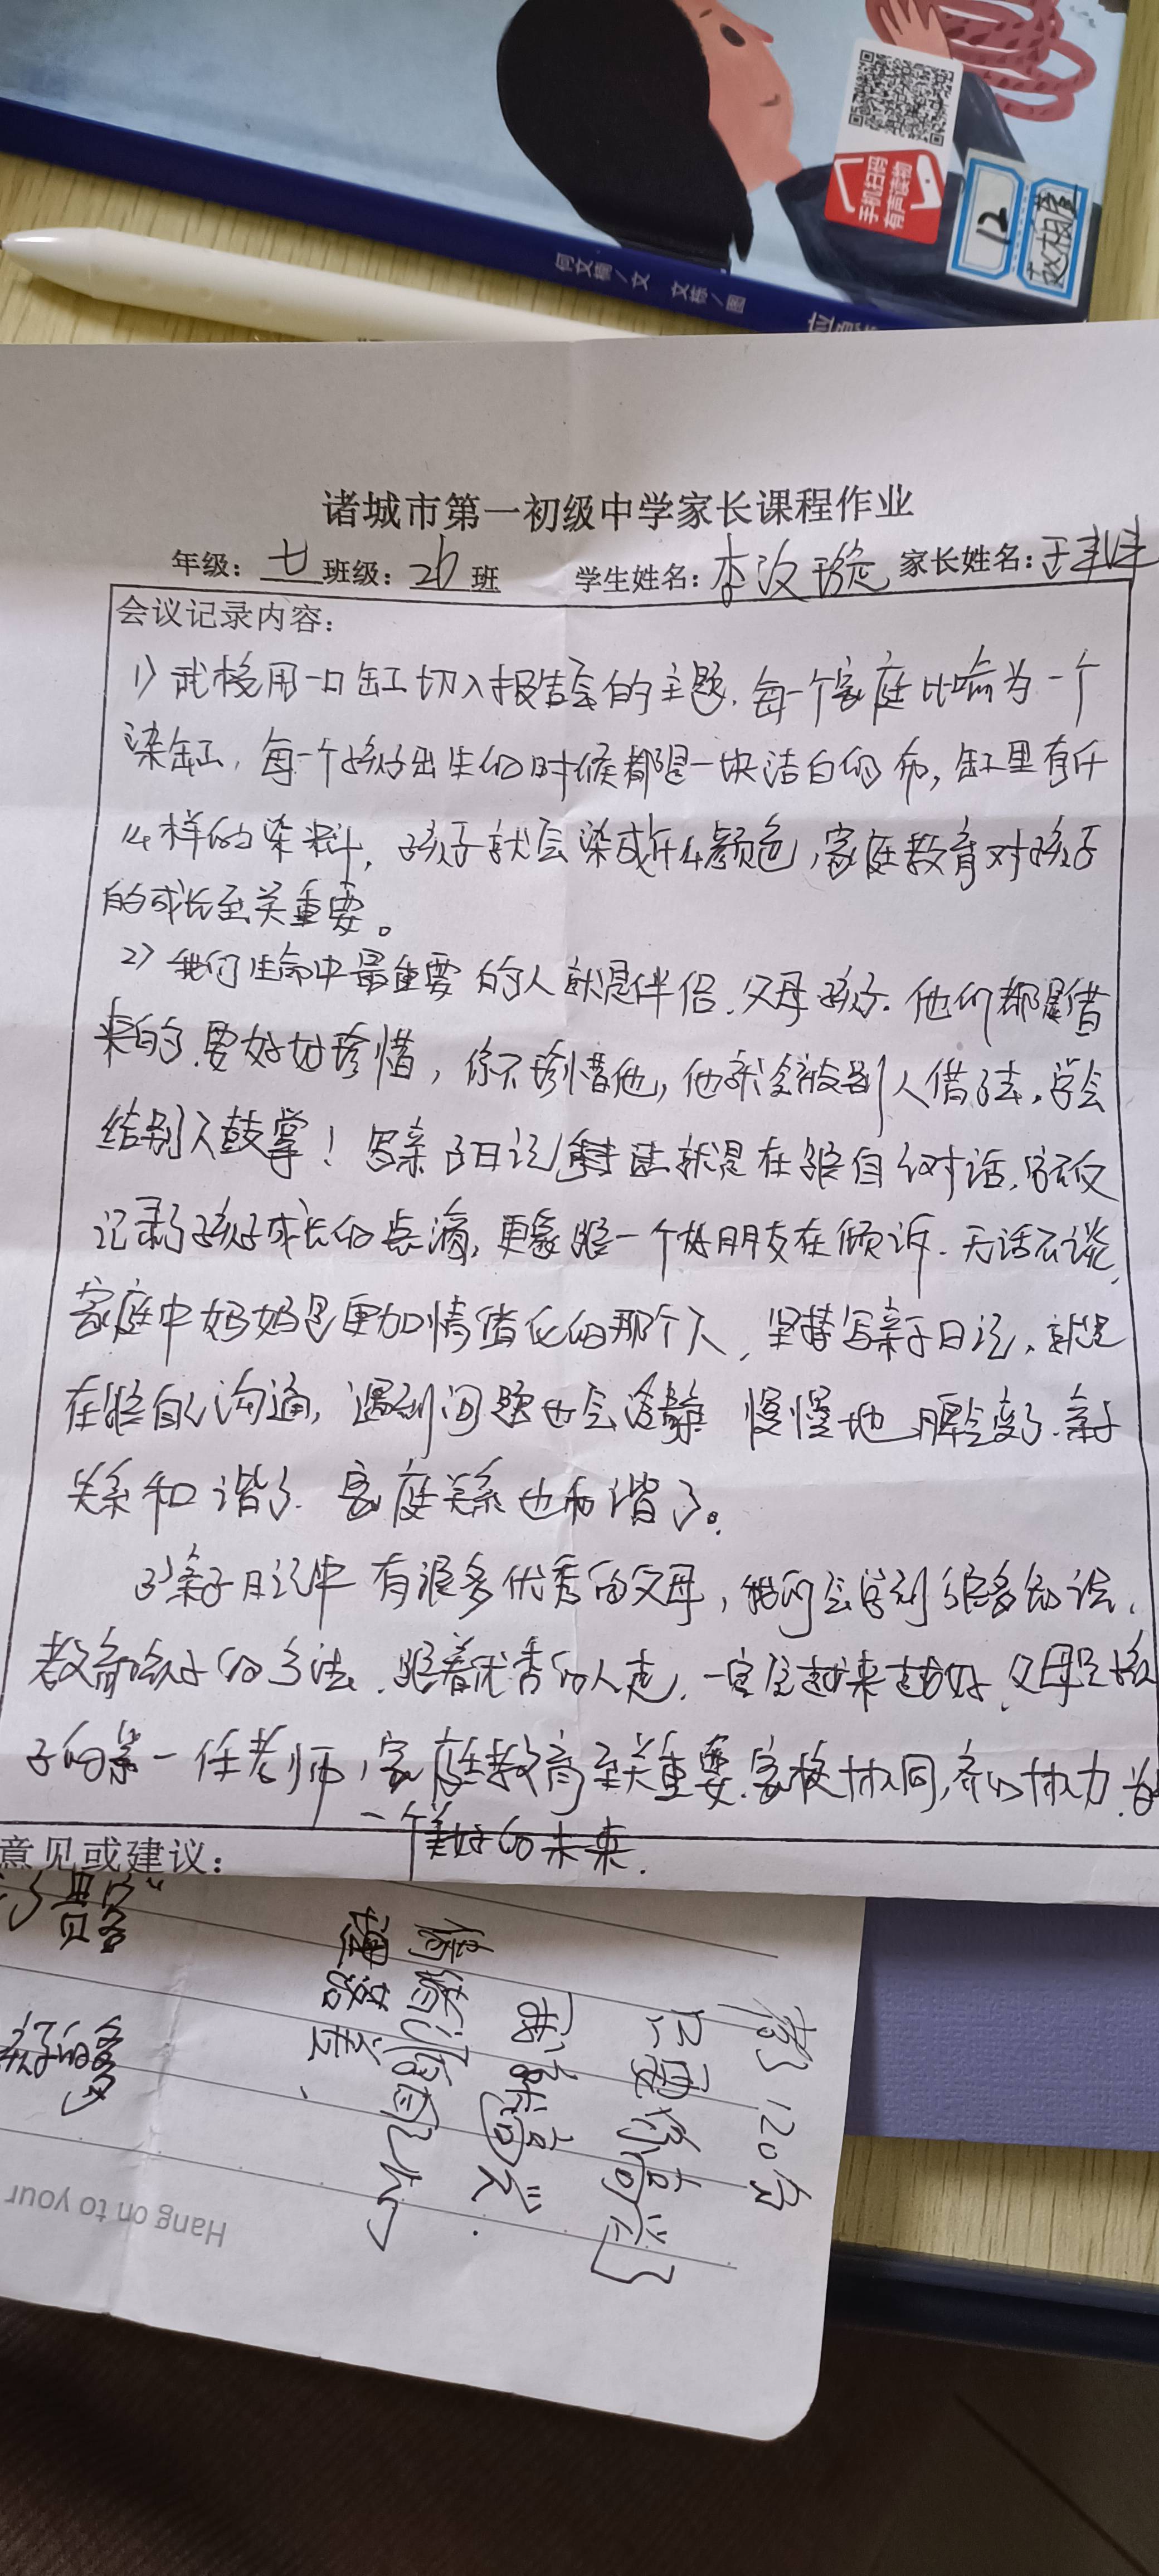 手机扫码
有声读物
12
何文楠/文 文栋/图
诸城市第一初级中学家长课程作业
年级：七班级：26班 学生姓名：李汶璇 家长姓名：王
会议记录内容：
1）武校用一口缸切入报告会的主题.每一个家庭比喻为一个
染缸，每一个孩子出生的时候都是一块洁白的布，缸里有什
么样的染料，孩子就会染成什么颜色，家庭教育对孩子
的成长至关重要。
2）我们生命中最重要的人就是伴侣.父母孩子.他们都是借
来的.要好好珍惜，你不珍惜他，他就会被别人借了去.学会
给别人鼓掌！写亲子日记就是在跟自己对话，不仅
记录了孩子成长的点滴，更象跟一个好朋友在倾诉.无话不谈，
家庭中妈妈是更加情绪化的那个人，坚持写亲子日记，就是
在跟自己沟通，遇到问题也会冷静 慢慢地脾气变了.亲子
关系和谐了.家庭关系也和谐了。
3）亲子日记中有很多优秀的父母，我们会学到很多的
教育孩子的方法.跟着优秀的人走，一定会越来越好.父母是孩
子的第一任老师，家庭教育至关重要.家校协同，齐心协力.
一个美好的未来.
意见或建议：
120分
只要你高兴
我就高兴.
Hang on to your